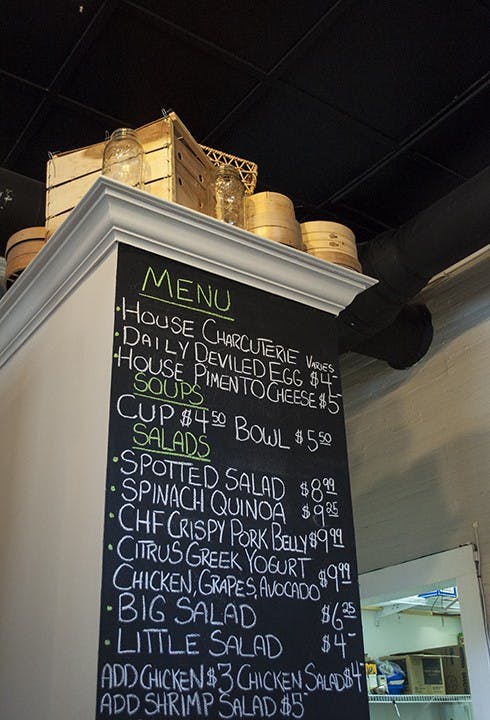 MENU
HOUSE CHARCUTERIE VARIES
DAILY DEVILED EGG $4-
HOUSE PIMENTO CHEESE $5
SOUPS
CUP $4 50 BOWL $5 50
SALADS
SPOTTED SALAD $8 99
SPINACH QUINOA $9 25
CHF CRISPY PORK BELLY $9 99
CITRUS GREEK YOGURT
CHICKEN, GRAPES, AVOCADO $9 99
BIG SALAD $6 25
LITTLE SALAD $4-
ADD CHICKEN $3 CHICKEN SALAD $4
ADD SHRIMP SALAD $5